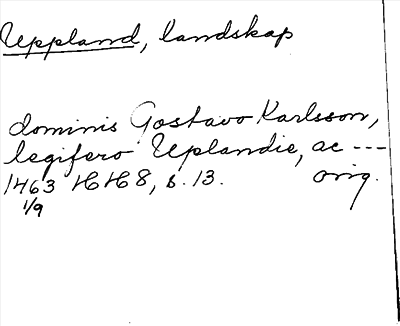 Uppland, landskap
dominis Gostavo Karlsson,
legifero Uplandie, ac ---
1463 HH 8, s. 13. orig.
1/9